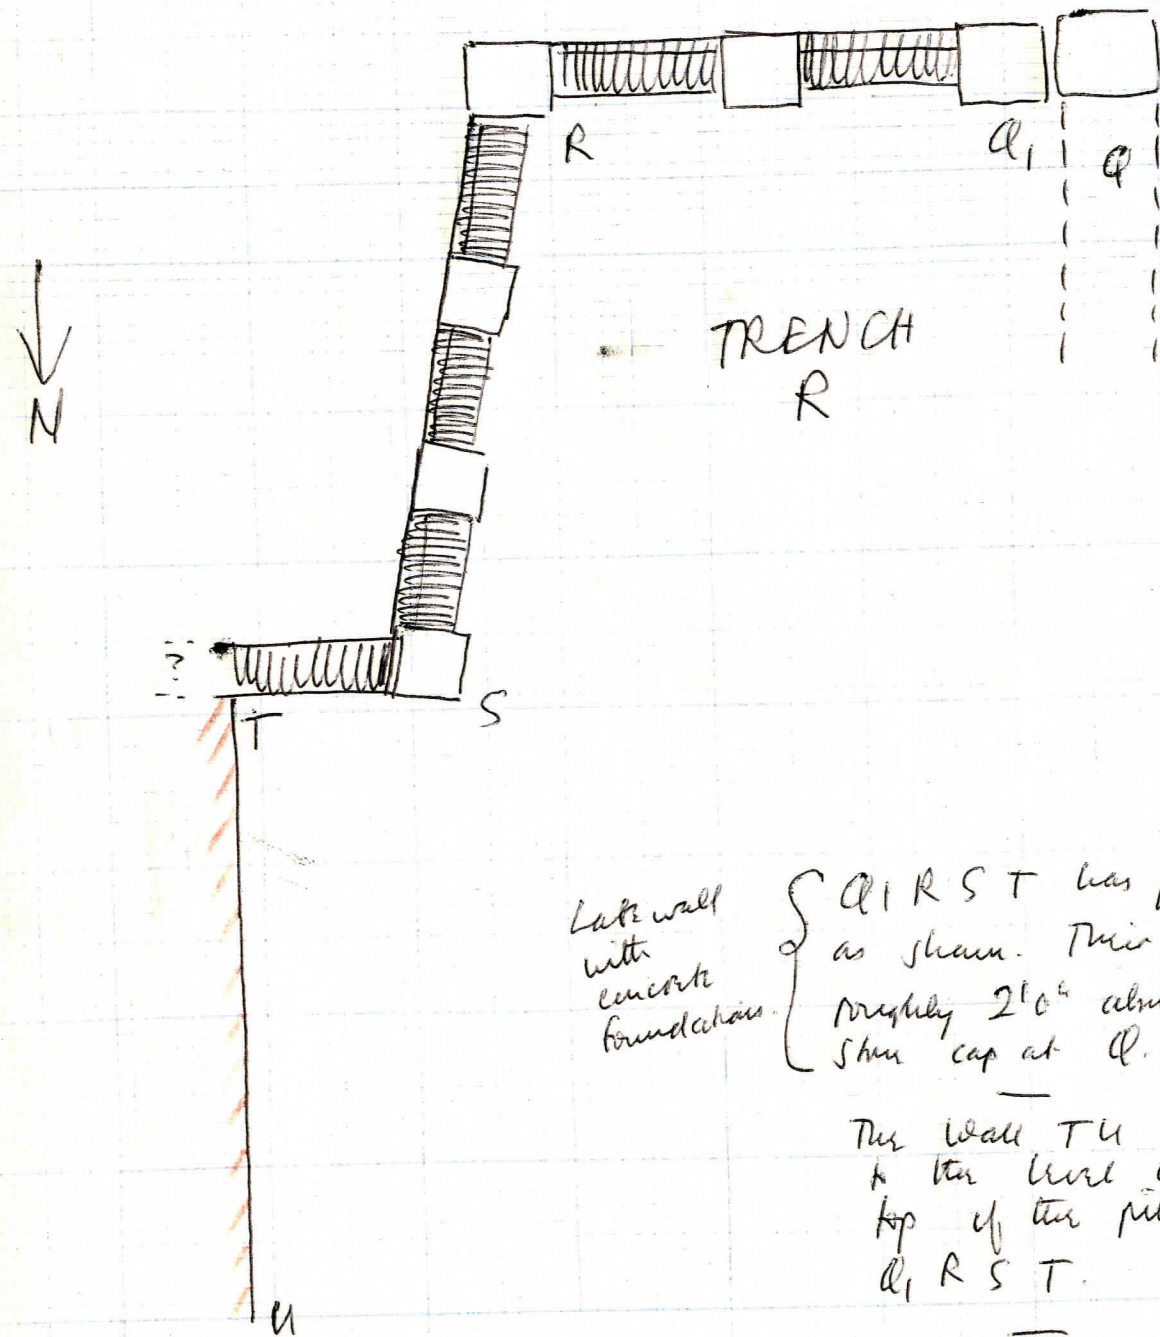 R
Q1
Q
N
TRENCH
R
?
T
S
U
Late wall
with
concrete
foundations.
Q1 R S T has
as shown. Their
roughly 2'0"
cap at Q.
The wall TU
to the level
top of the
Q1 R S T.